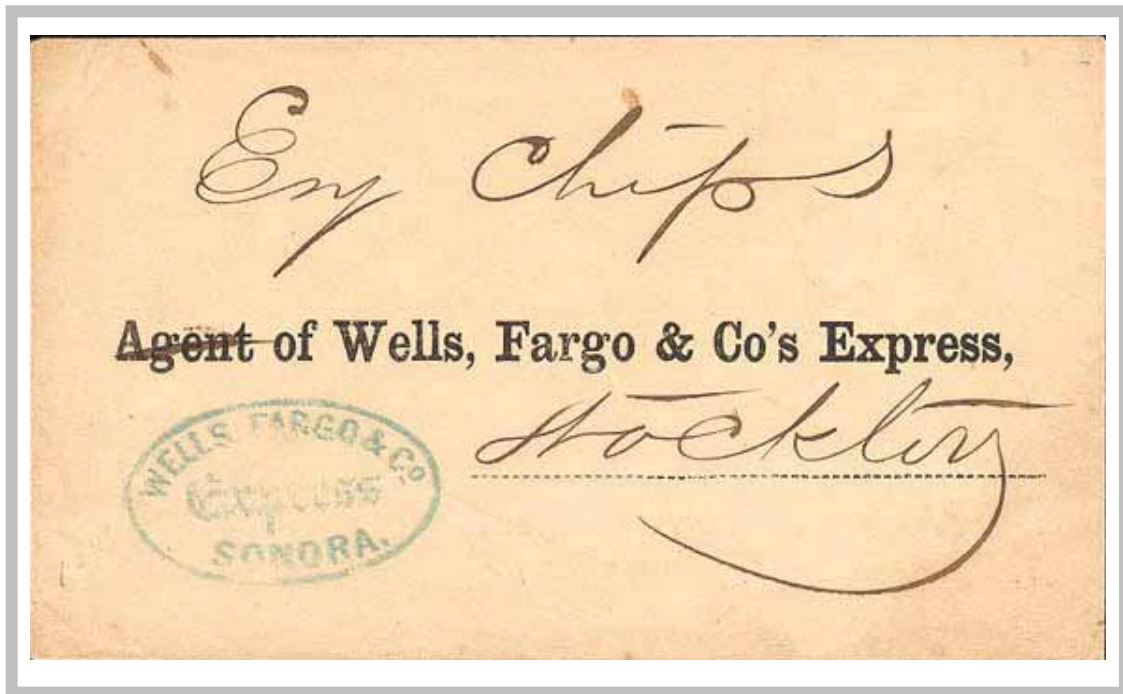 Eny Chips
Agent of Wells, Fargo & Co's Express,
Stockton
WELLS FARGO & Co
Express
SONORA.